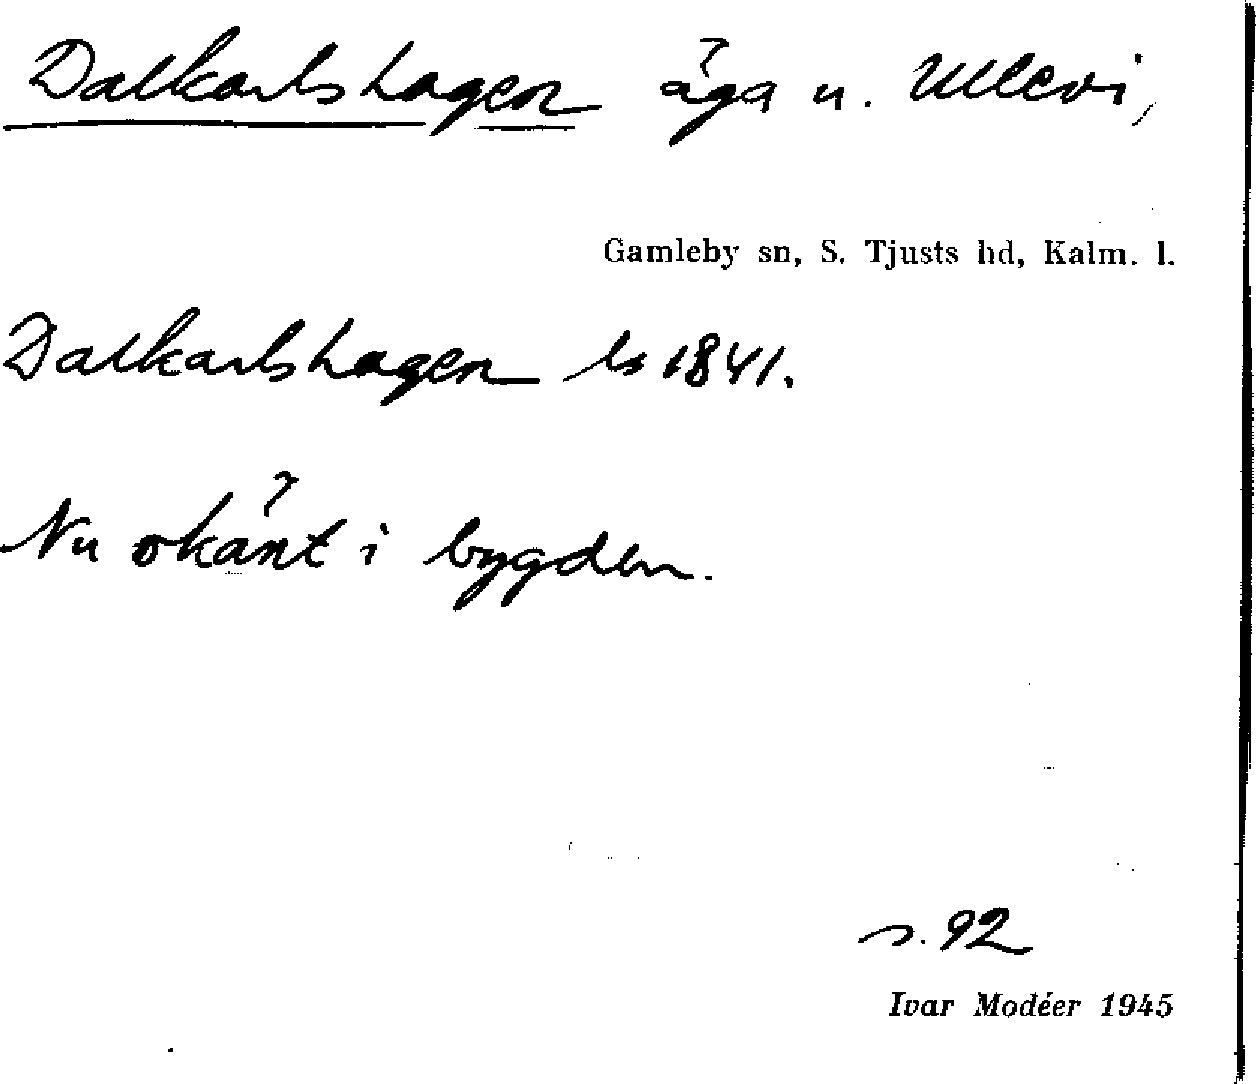 Dalkarlshagen äga u. Ullevi,
Gamleby sn, S. Tjusts hd, Kalm. l.
Dalkarlshagen ls 1841.
Nu okänt i bygden.
s. 92
Ivar Modéer 1945